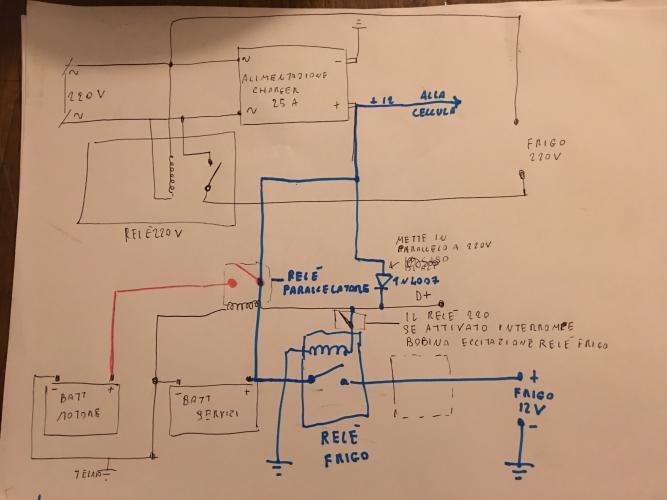 ~
220V
~
~ -
ALIMENTAZIONE
CHARGER
25 A
~ +
+ 12 ALLA
CELLULA
FRIGO
220V
RELÈ 220V
METTE IN
PARALLELO A 220V
1N4007
D+
RELÈ
PARALLELATORE
IL RELÈ 220
SE ATTIVATO INTERROMPE
BOBINA ECCITAZIONE RELÈ FRIGO
- +
BATT
MOTORE
- +
BATT
SERVIZI
RELÈ
FRIGO
+
FRIGO
12V
-
TELAIO